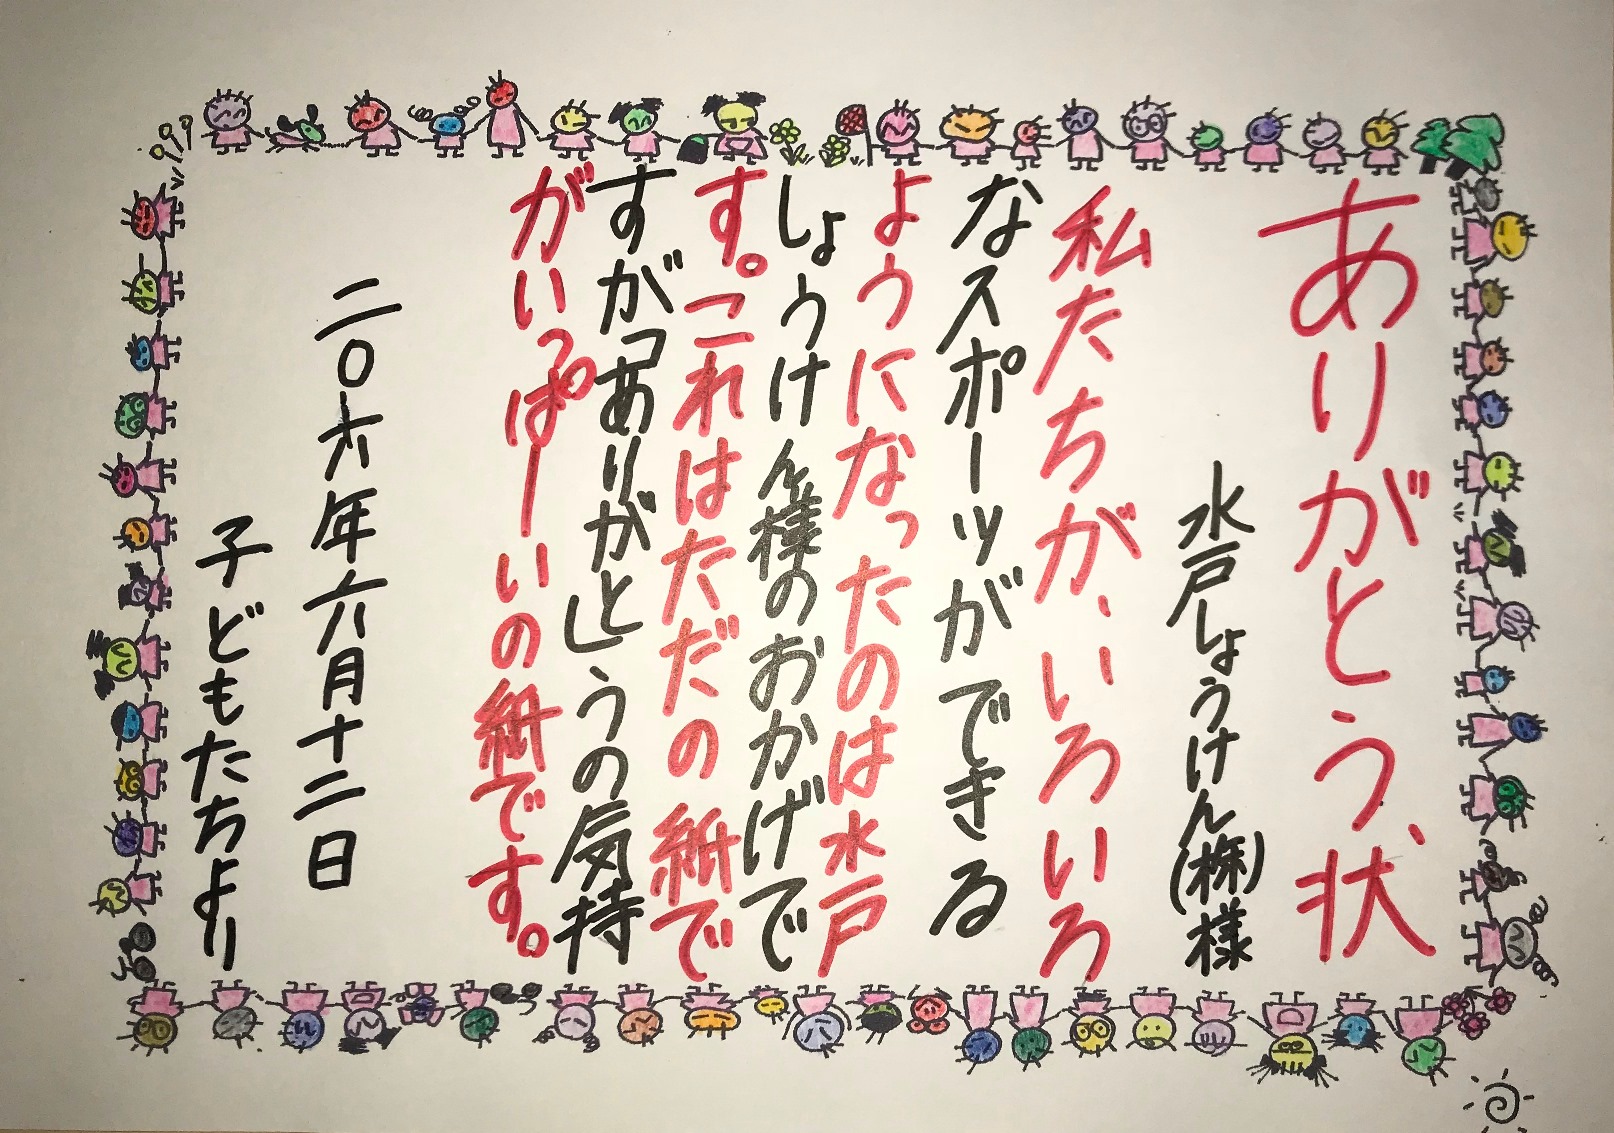 ありがとう状
水戸しょうけん(株)様
私たちが、いろいろ
なスポーツができる
ようになったのは水戸
しょうけん様のおかげで
す。これはただの紙で
すが「ありがと」うの気持
がいっぱーいの紙です。
二〇六年六月十二日
子どもたちより